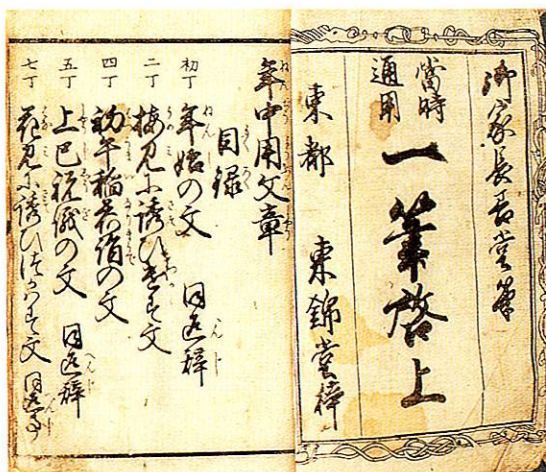 御家長堂筆
當時
通用
一筆啓上
東都 東錦堂梓
年中用文章
目録
初丁 年始の文 同返辞
二丁 梅見に誘ひ遣す文
四丁 初午稲荷詣の文
五丁 上巳祝儀の文 同返辞
七丁 花見に誘ひつかはす文 同返事